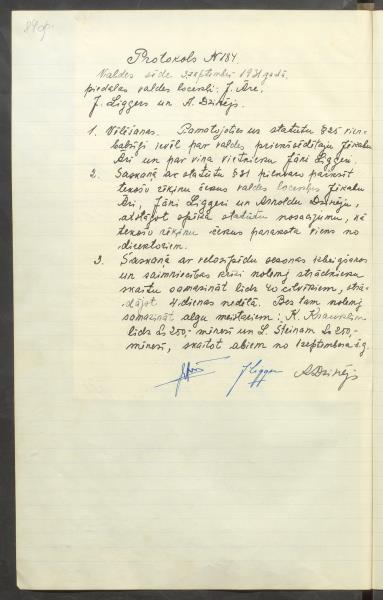 Protokols N184
Valdes sēde 2.septembrī 1931.gadā,
piedalās valdes locekļi: J. Āre,
J. Liggers un A. Dzinējs.
1. Vēlēšanas. Pamatojoties uz statūtu §25 vien-
balsīgi ievēl par valdes priekšsēdētāju Jēkabu
Āri un par viņa vietnieku Jāni Liggeri.
2. Saskaņā ar statūtu §31 pilnvaro parakstīt
tekošu rēķinu čekus valdes locekļus Jēkabu
Āri, Jāni Liggeri un Arnoldu Dzinēju,
atstājot spēkā statūtu nosacījumu, ka
tekošu rēķinu čekus paraksta viens no
direktoriem.
3. Saskaņā ar velosipēdu sezonas izbeigšanos
un saimniecības krīzi nolemj strādnieku
skaitu samazināt līdz 40 cilvēkiem, strā-
dājot 4 dienas nedēļā. Bez tam nolemj
samazināt algu meistariem: K.
līdz Ls 250,- mēnesī un L. Šteinam Ls 250,-
mēnesī, skaitot abiem no 1 septembra š.g.
JLigger ADzinējs